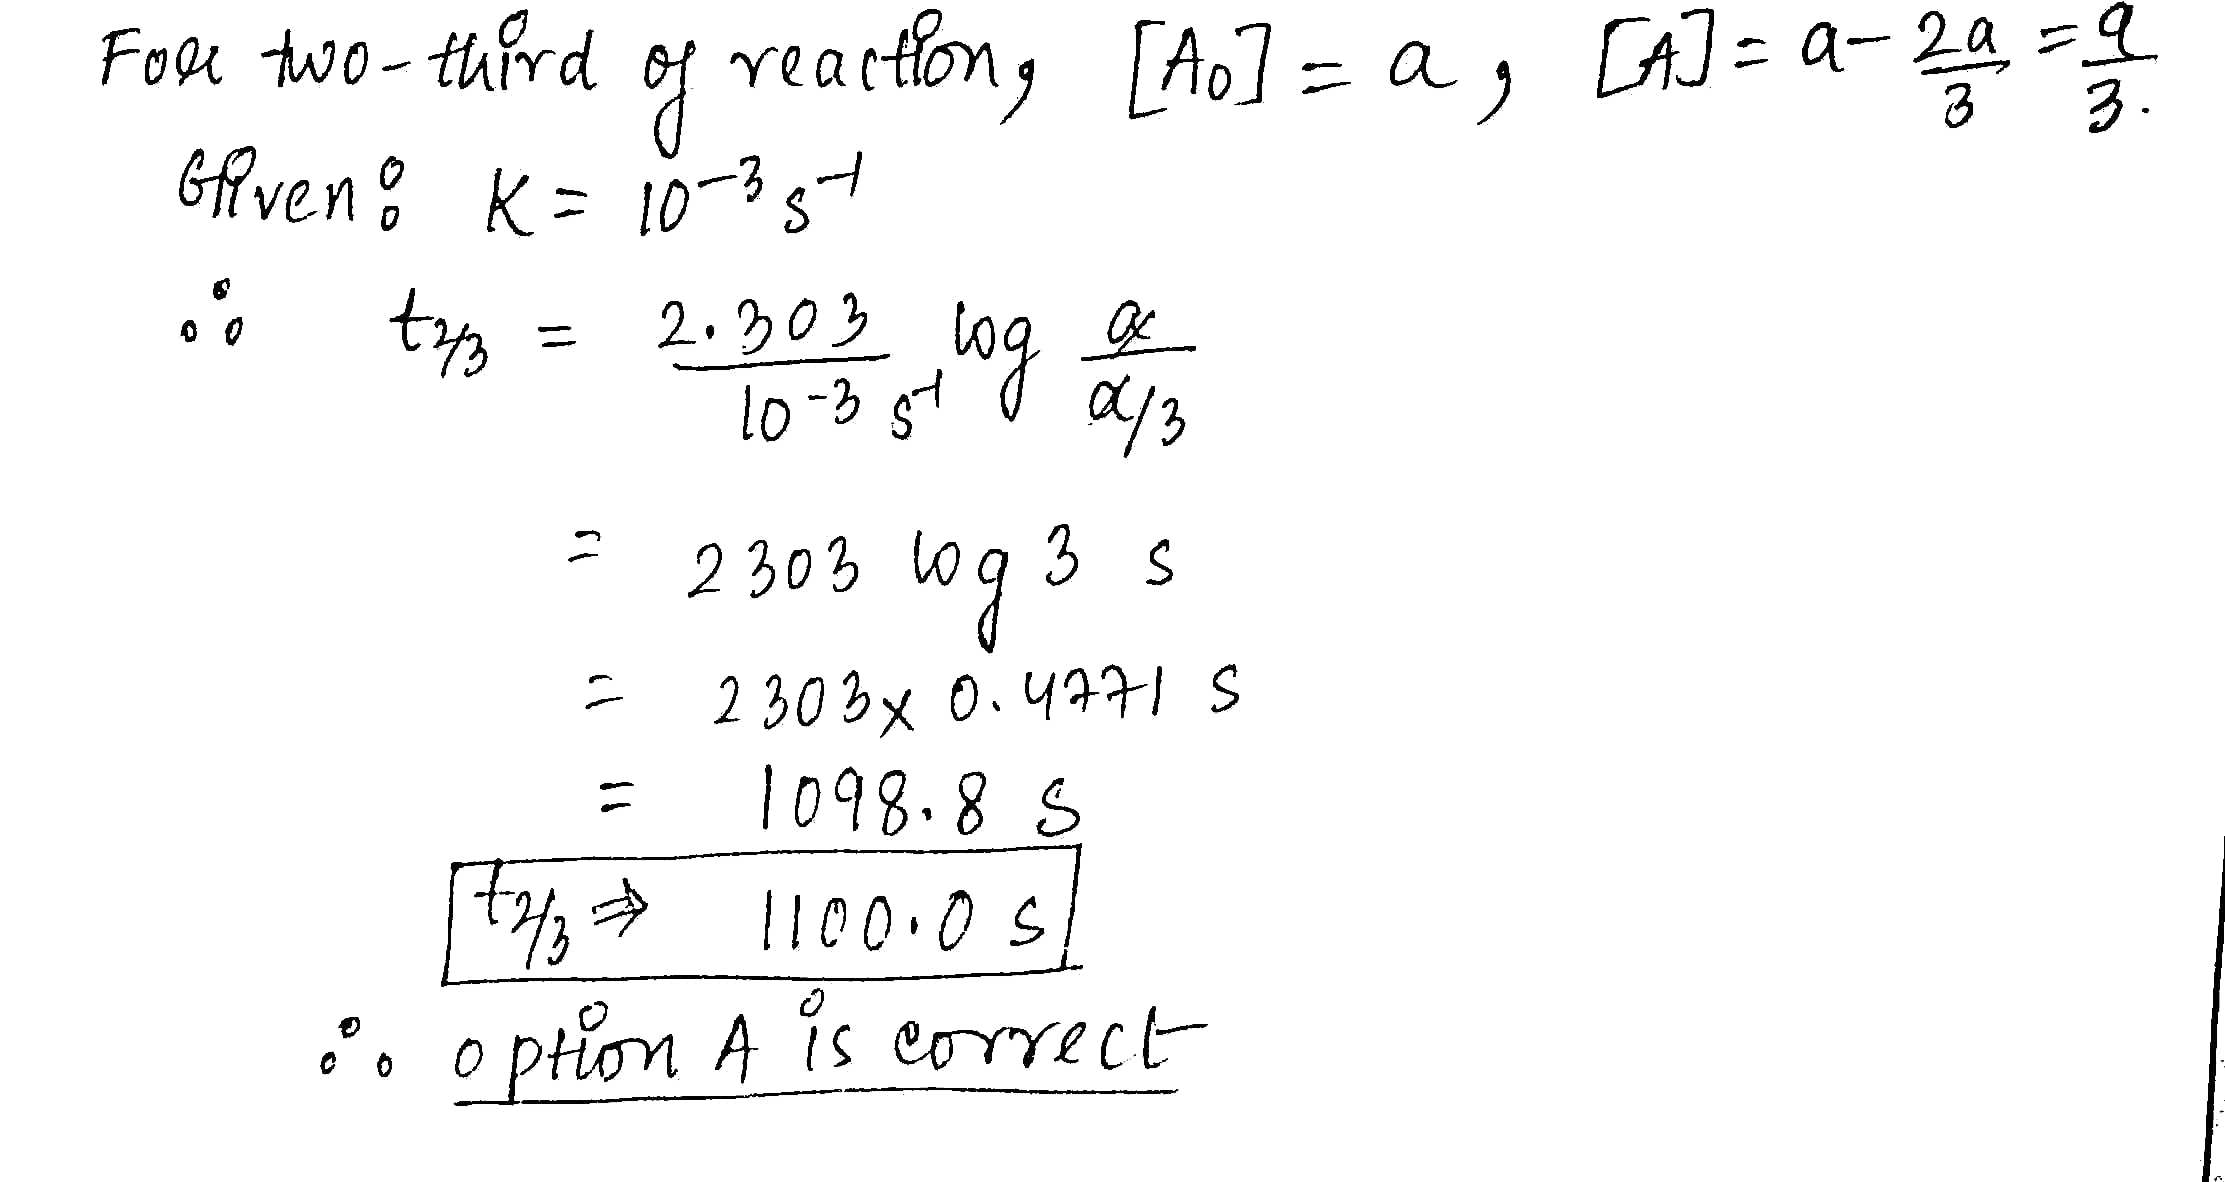 For two-third of reaction, [A₀] = a, [A] = a - 2a/3 = a/3.
Given: K = 10⁻³ s⁻¹
∴ t₂/₃ = 2.303/10⁻³ s⁻¹ log a/a/3
= 2303 log 3 s
= 2303 x 0.4771 s
= 1098.8 s
t₂/₃ ⇒ 1100.0 s
∴ option A is correct